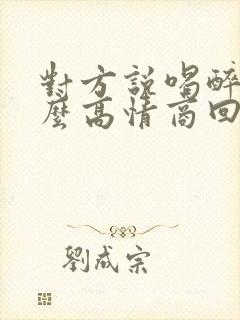 對方說喝醉
麼高情商回
劉成宗